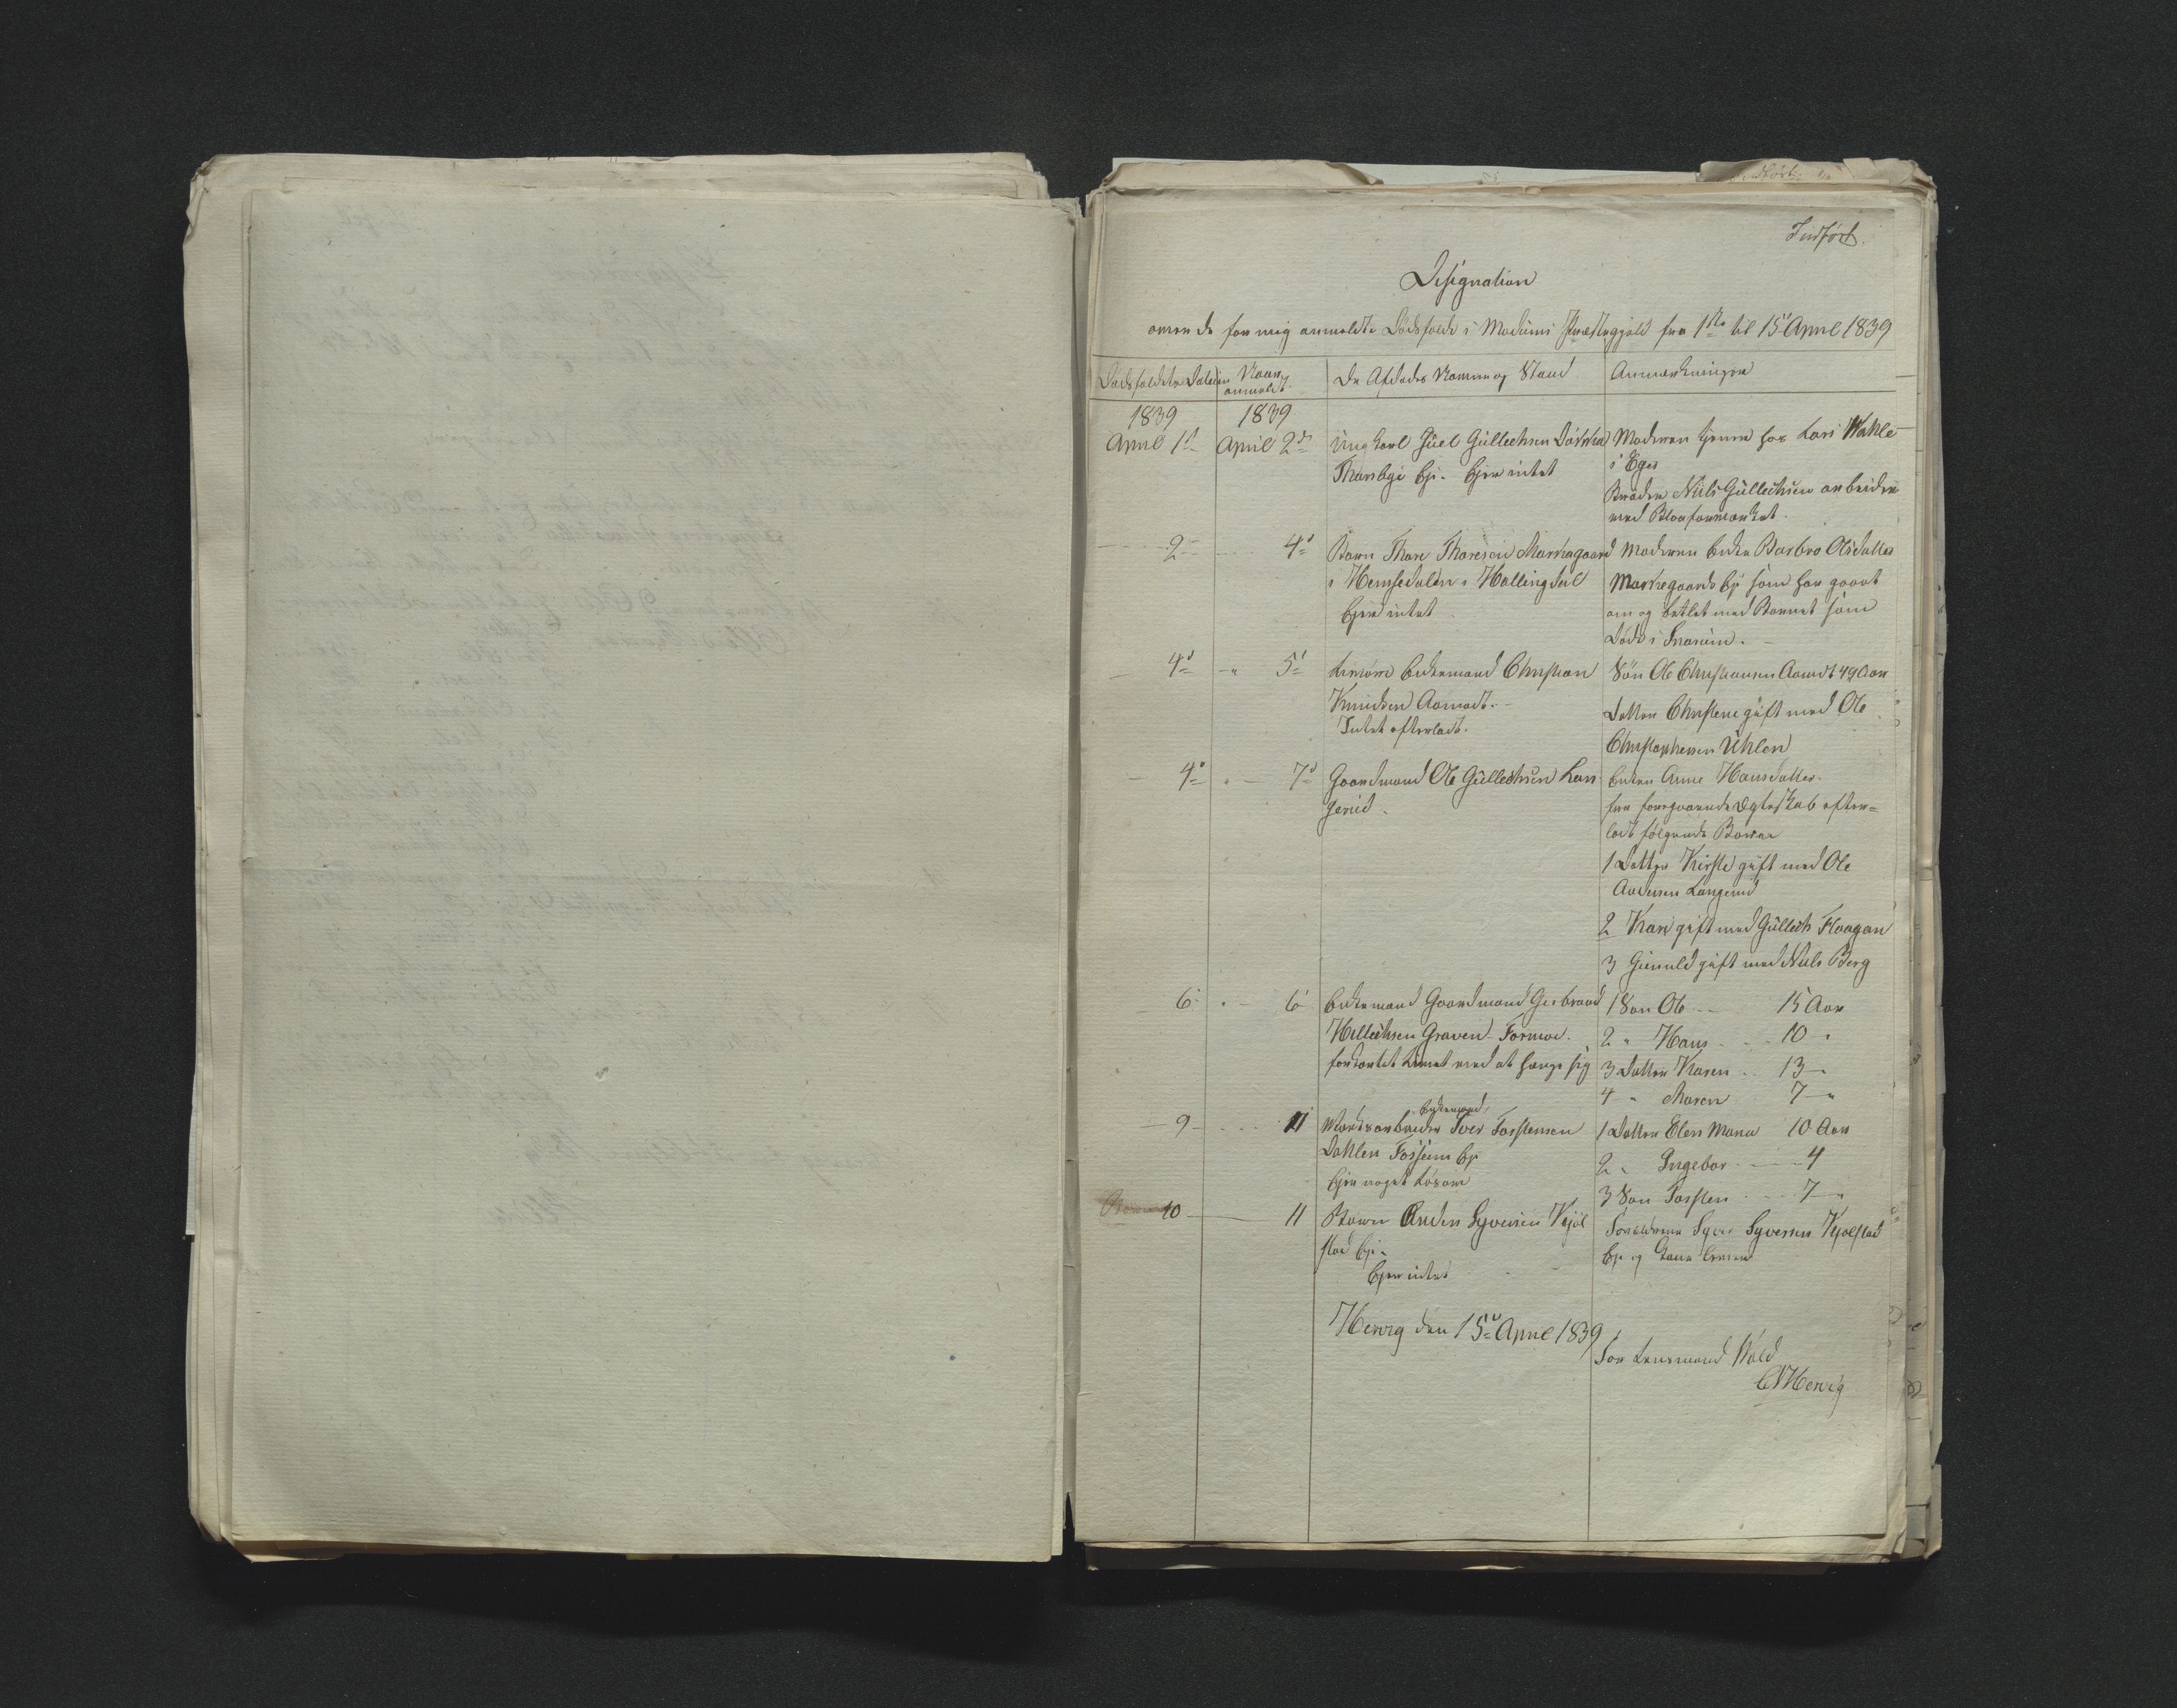 Indført.
Designation
over de for mig anmeldte Dødsfalde i Modums Præstegjeld fra 1ste til 15d April 1839
Dødsfaldets Datum
Naar anmeldt.
De Afdødes Navne og Stand
Anmærkninger
1839
1839
April 1d
April 2d
Ungkarl Juel Gullechsen
Thorsbye Ejr. Ejer intet
Moderen tjener hos Lars Wahle
i Eger
Broder Niels Gullechsen arbeider
ved Blaafarveværket.
2
4d
Barn Thore Thoresen Markegaard
i Hemsedalen i Hallingdal
Ejer intet
Moderen Enke Barbro Olsdatter
Markegaards Ej som har gaaet
om og betlet med Barnet som
døde i Snarum.
4d
5d
Enkemand Christian
Knudsen Aamodt.
Intet efterladt.
Søn Ole Christiansen Aamodt 49 Aar
Datter Christine gift med Ole
Christophersen Uhlen
4d
7d
Gaardmand Ole Gullechsen Lan
gerud.
Enken Anne Hansdatter.
fra foregaaende Ægteskab efter=
ladt følgende Børn
1 Datter Kirsti gift med Ole
Andersen Langerud
2 Kari gift med Gullech Haagan
3 Gunild gift med Niels Berg
6
6
Enkemand Gaardmand Gulbrand
Hellechsen Graven
forkortet Livet ved at hænge sig
1 Søn Ole 15 Aar
2 " Hans 10 "
3 Datter Karen 13 "
4 " Maren 7 "
9
11
Enkemand
Værksarbeider Iver Torstensen
Dahlen Fossum Ej
Ejer noget Løsøre
1 Datter Elen Maria 10 Aar
2 " Ingebor 4
3 Søn Torsten 7 "
10
11
Barn Anders Syversen Kjøl
stad Ej.
Ejer intet
Forældrene Syver Syversen Kjølstad
Ej og Kone lever
Hervig den 15d April 1839
For Lensmand Wold
C Hervig